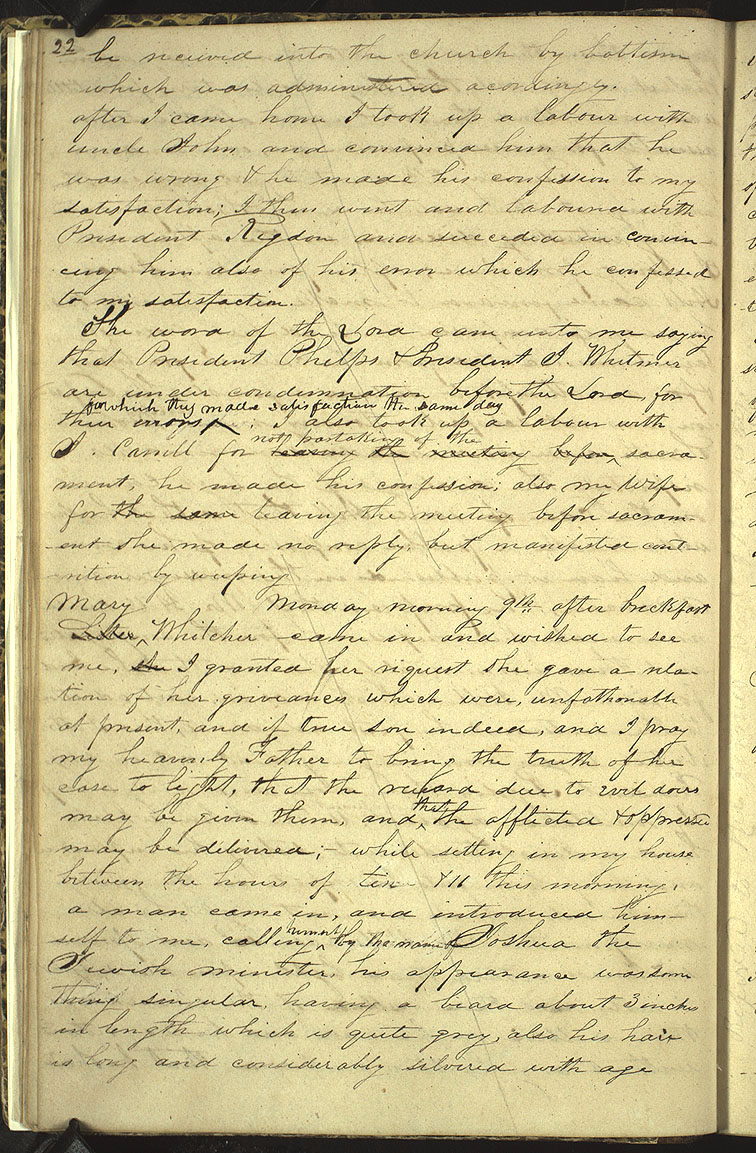 22 be received into the church by babtism
which was administered acordingly.
after I came home I took up a labour with
uncle John and convinced him that he
was wrong & he made his confession to my
satisfaction; I then went and laboured with
President Rigdon and succeded in convin-
cing him also of his error which he confessed
to my satisfaction.
The word of the Lord cam unto me saying
that President Phelps & President J. Whitmer
are under condemnation before the Lord, for
for which they made satisfaction the same day
their errors ; I also took up a labour with
not partaking of the
J. Carrill for leaveing the meeting before sacra
ment, he made his confession; also my wife
for the same leaving the meeting before sacram-
ent she made no reply, but manifested cont-
rition by weeping
Mary Monday morning 9th after breckfast
Sister, Whitcher came in and wished to see
me, she I granted her request she gave a rela-
tion of her griveances which were, unfathonable
at present, and if true sore indeed, and I pray
my heavenly Father to bring the truth of her
case to light, that the reward due to evil doers
may be given them, and
that
the afflicted & oppressed
may be delivered;- while setting in my house
between the hours of ten & 11 this morning,
a man came in, and introduced him-
self to me, calling
himself
by the name of Joshua the
Jewish minister, his appearance was some
thing singular, having a beard about 3 inches
in length which is quite grey, also his hair
is long and considerably silvered with age